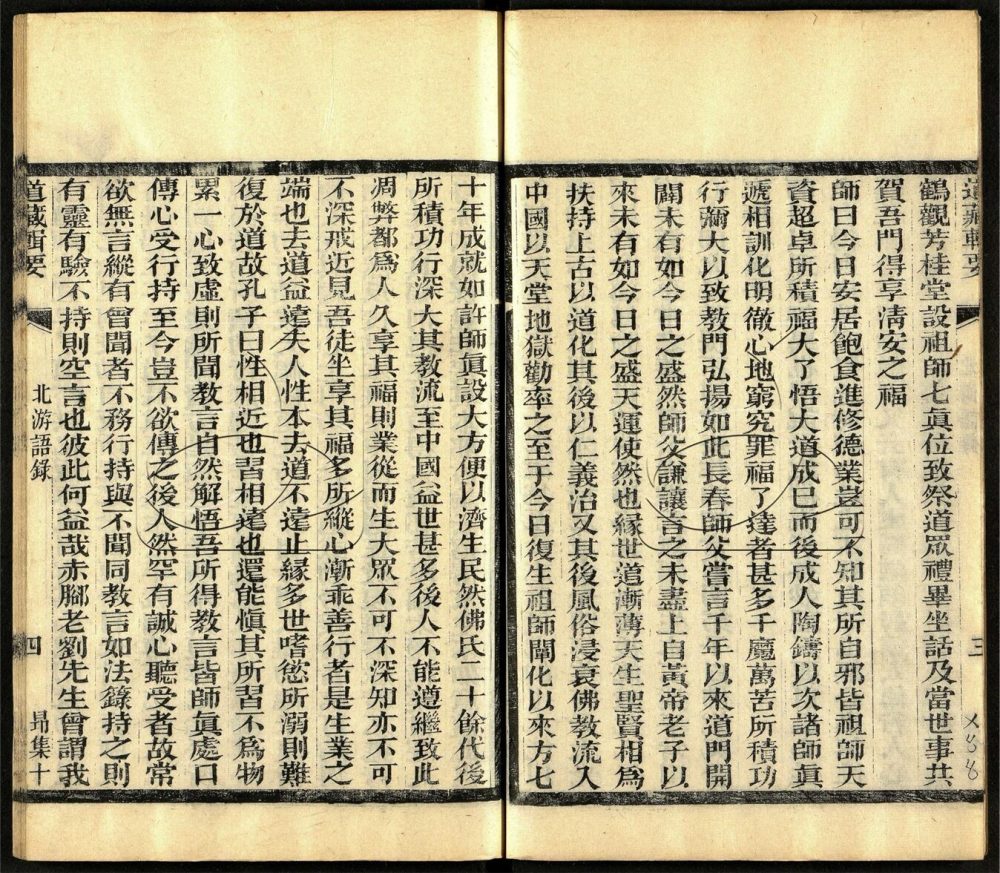 道藏輯要
鶴觀芳桂堂設祖師七眞位致祭道眾禮畢坐話及當世事共
賀吾門得享淸安之福
師曰今日安居飽食進修德業豈可不知其所自邪皆祖師天
資超卓所積福大了悟大道成巳而後成人陶鑄以次諸師眞
遞相訓化明徹心地窮究罪福了達者甚多千魔萬苦所積功
行彌大以致教門弘揚如此長春師父嘗言千年以來道門開
闢未有如今日之盛然師父謙讓言之未盡上自黃帝老子以
來未有如今日之盛天運使然也緣世道漸薄天生聖賢相爲
扶持上古以道化其後以仁義治又其後風俗浸衰佛教流入
中國以天堂地獄勸率之至于今日復生祖師闡化以來方七
三
十年成就如許師眞設大方便以濟生民然佛氏二十餘代後
所積功行深大其教流至中國益世甚多後人不能遵繼致此
凋弊都爲人久享其福則業從而生大眾不可不深知亦不可
不深戒近見吾徒坐享其福多所縱心漸乖善行者是生業之
端也去道益遠矣人性本去道不遠止緣多世嗜慾所溺則難
復於道故孔子曰性相近也習相遠也還能愼其所習不爲物
累一心致虛則所聞教言自然解悟吾所得教言皆師眞處口
傳心受行持至今豈不欲傳之後人然罕有誠心聽受者故常
欲無言縱有曾聞者不務行持與不聞同教言如法籙持之則
有靈有驗不持則空言也彼此何益哉赤腳老劉先生曾謂我
道藏輯要
北游語錄
四
昴集十